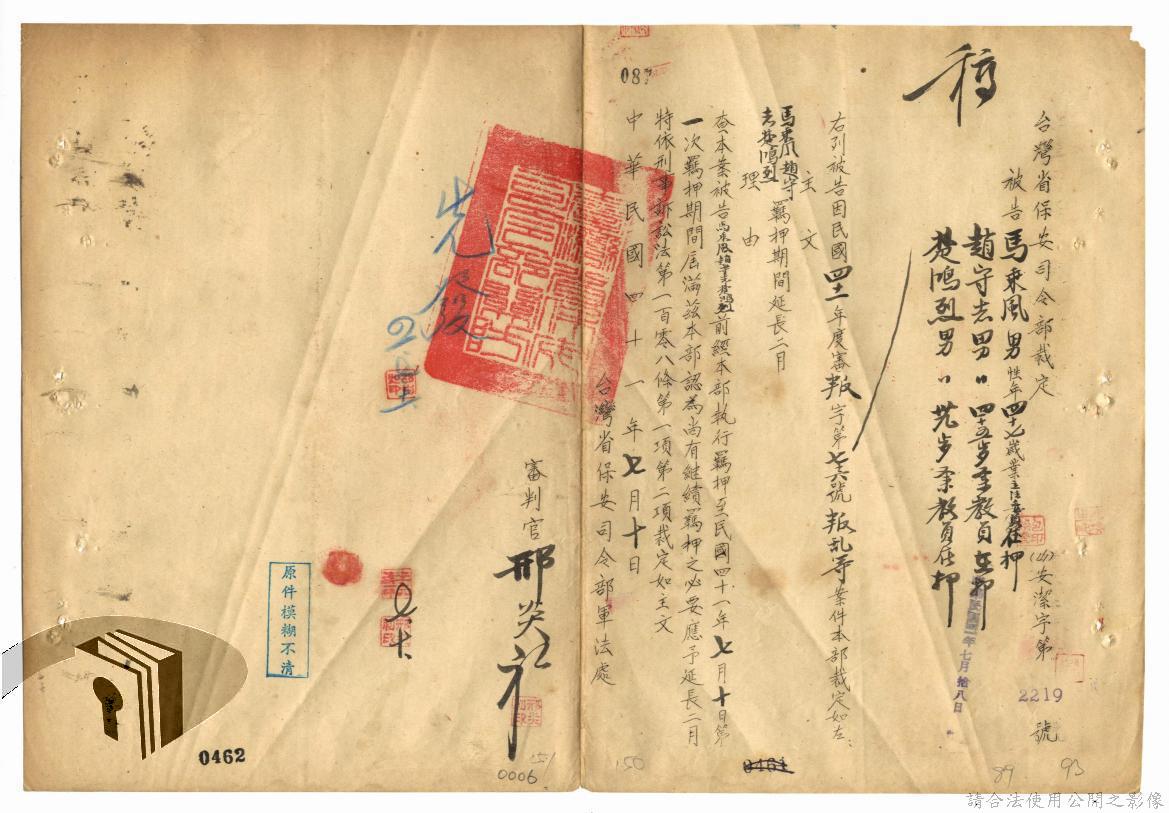 稿
台灣省保安司令部裁定
(41)安潔字第2219號
被告馬乘風男性年四十七歲業立法委員在押
趙守志男〃四十五歲業教員在押
楚鴻烈男〃卅九歲業教員在押
年七月拾八日
右列被告因民國四十一年度審叛字第七六號叛乱等案件本部裁定如左:
主文
馬乘風趙守志楚鴻烈羈押期間延長二月
理由
查本案被告馬乘風趙守志楚鴻烈前經本部執行羈押至民國四十一年七月十日第
一次羈押期間屆滿茲本部認為尚有継續羈押之必要應予延長二月
特依刑事訴訟法第一百零八條第一項第二項裁定如主文
中華民國四十一年七月十日
台灣省保安司令部軍法處
審判官邢炎初
原件模糊不清
087
0461
0462
0006
151
150
89
93
請合法使用公開之影像